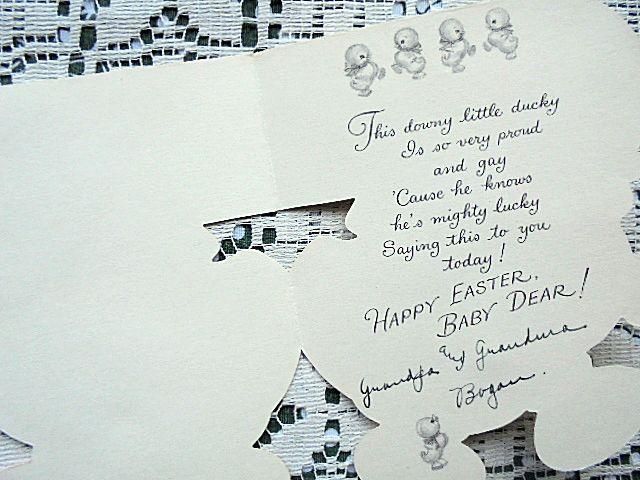 This downy little ducky
Is so very proud
and gay
'Cause he knows
he's mighty lucky
Saying this to you
today!
HAPPY EASTER,
BABY DEAR!
Grandpa and Grandma
Bogan.